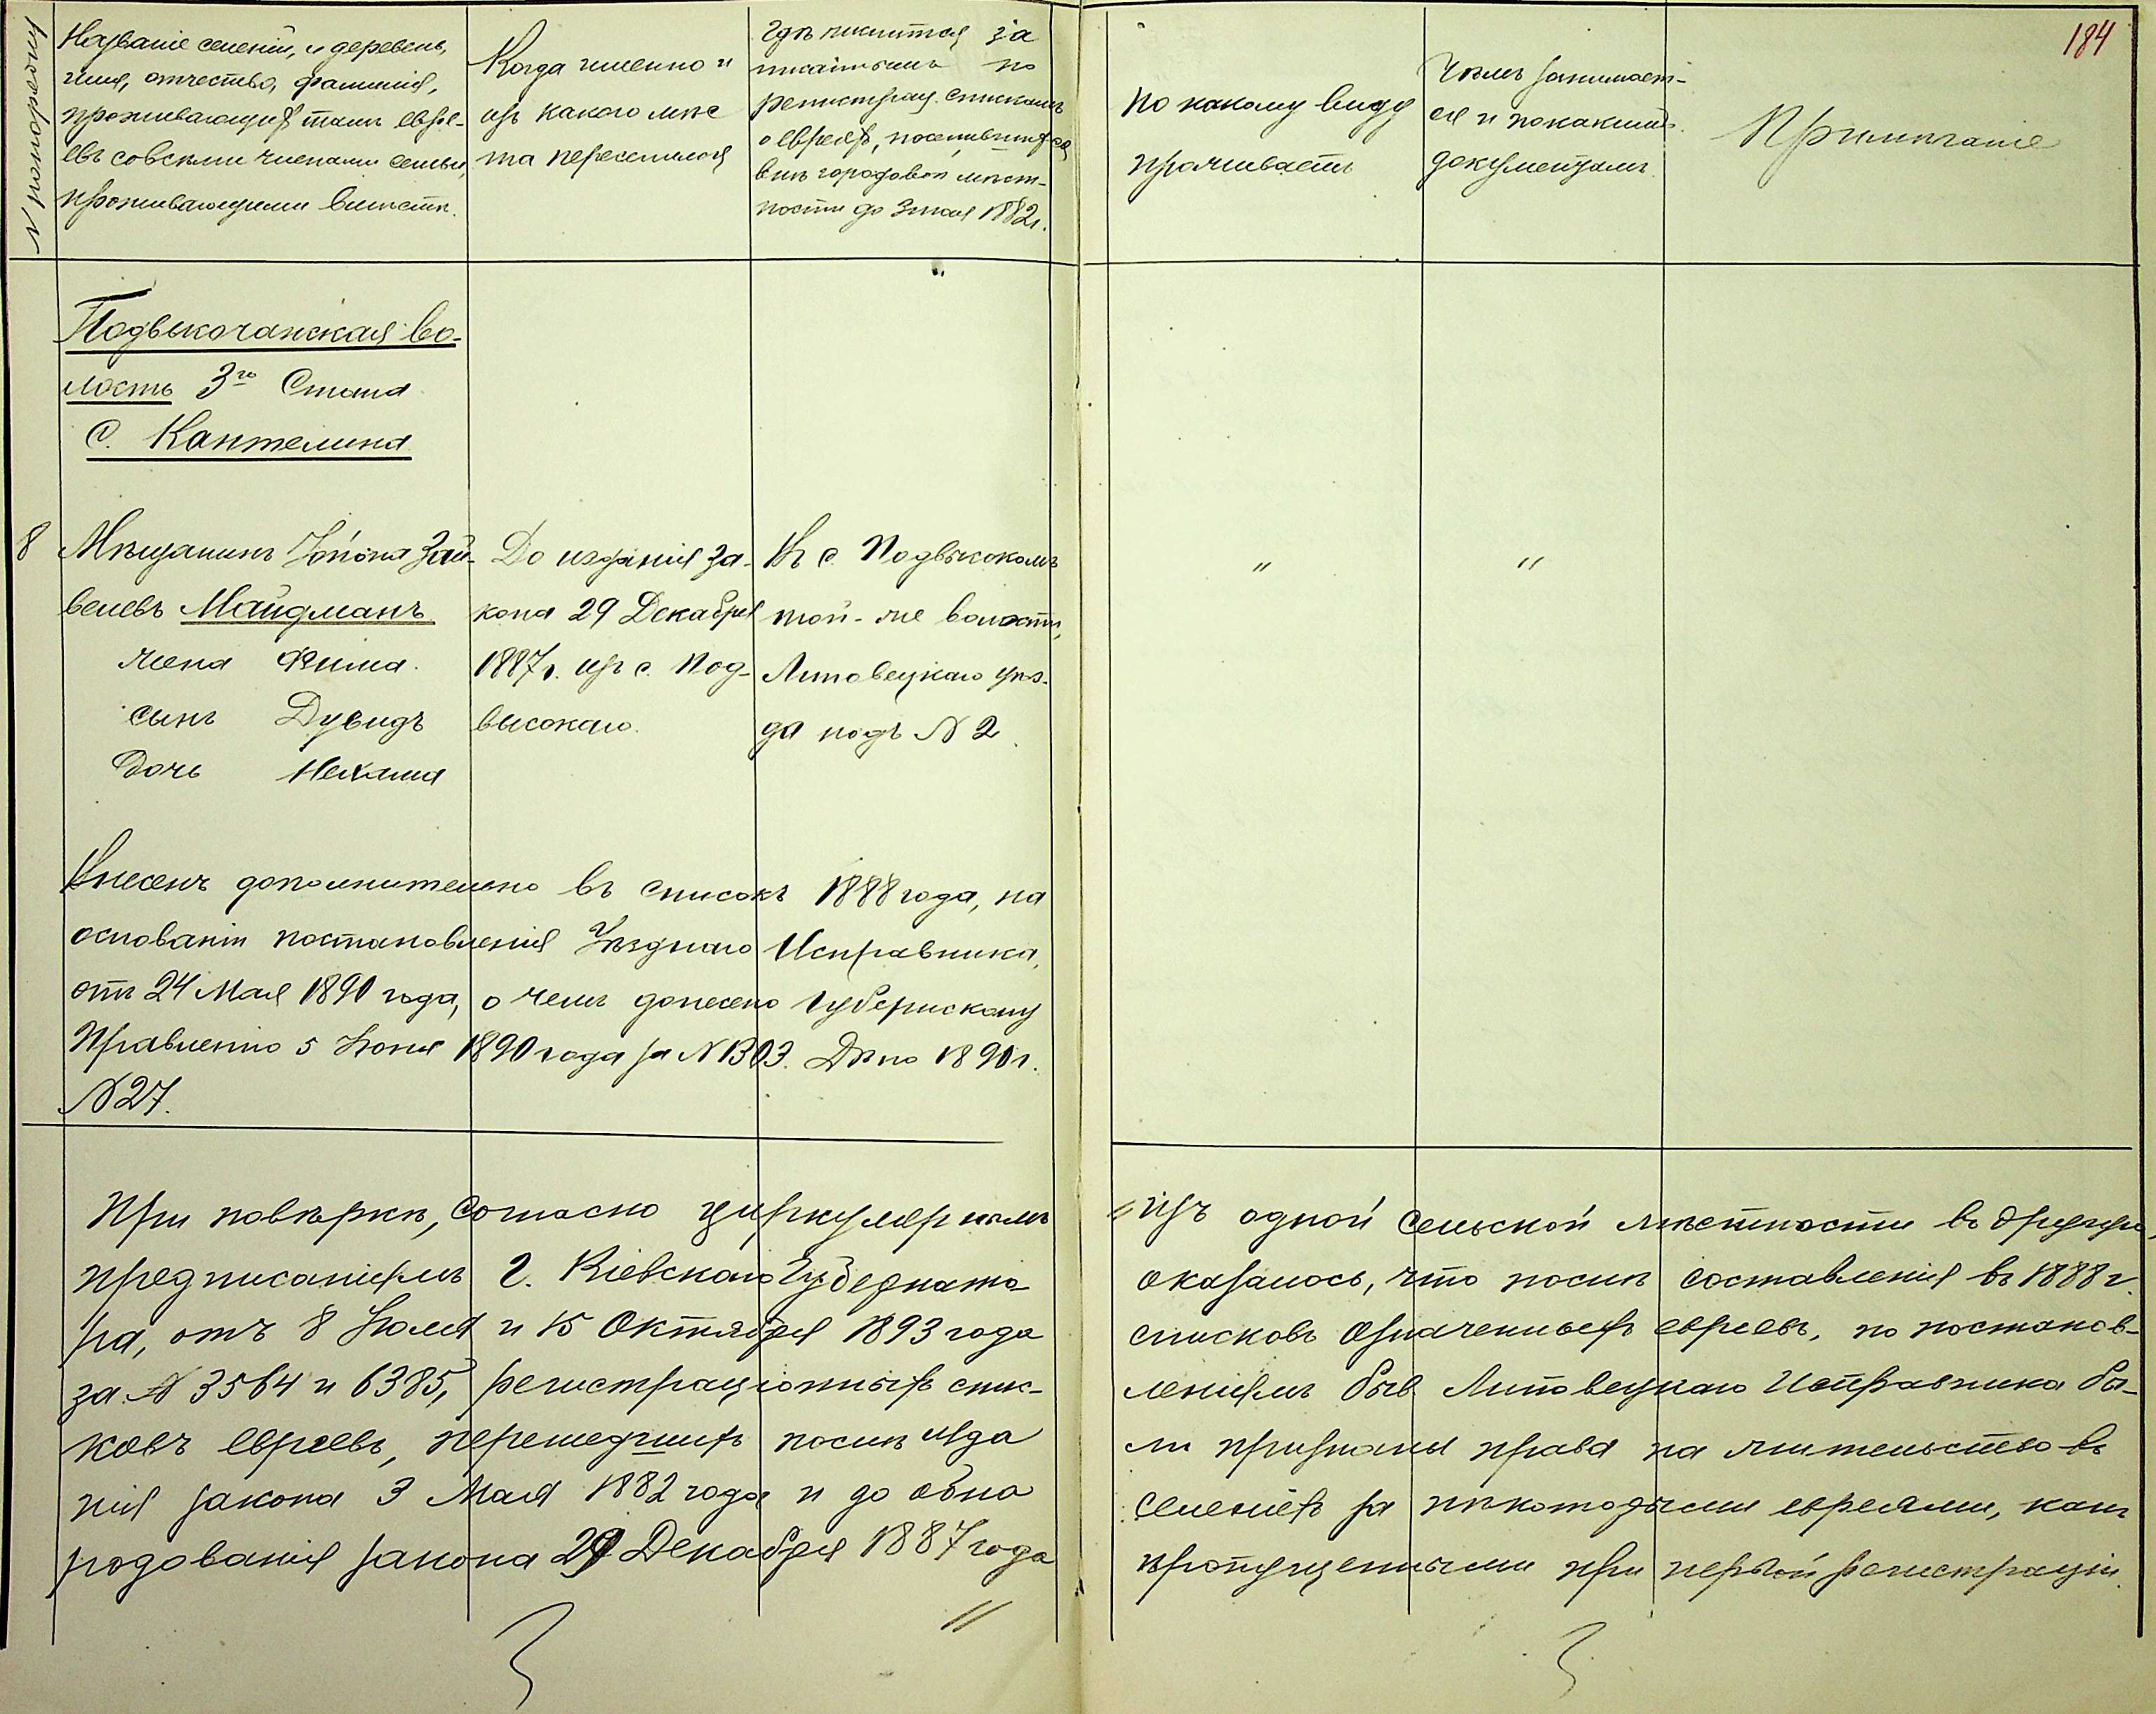 184
№ по порядку
Названіе селеній, и деревень,
имя, отчество, фамилія,
проживающихъ тамъ евре-
евъ со всѣми членами семьи,
проживающими вмѣстѣ.
Когда именно и
изъ какого мѣс
та переселился
Гдѣ числится за
писаннымъ по
регистрац. спискамъ
о евреяхъ, поселившихся
внѣ городовой мѣст-
ности до 3 мая 1882 г.
По какому виду
проживаетъ
Чѣмъ занимает-
ся и по какимъ
документамъ.
Примѣчаніе
Подвысочанская во-
лость 3го Стана
С. Кантелина
8
Мѣщанинъ Зай-
велевъ Майдманъ
жена Фима.
сынъ Дувидъ
дочь Нехама
До изданія за-
кона 29 Декабря
1887 г. изъ с. Под-
высокаго.
Въ с. Подвысокомъ
той-же волости,
Липовецкаго уѣз-
да подъ № 2.
"
"
Внесенъ дополнительно въ списокъ 1888 года, на
основаніи постановленія Уѣзднаго Исправника,
отъ 24 Мая 1890 года, о чемъ донесено Губернскому
Правленію 5 Іюня 1890 года за № 1303. Дѣло 1890 г.
№ 27.
При повѣркѣ, согласно циркулярнымъ
предписаніямъ Г. Кіевскаго Губернато-
ра, отъ 8 Іюля и 15 Октября 1893 года
за № 3564 и 6385, регистраціонныхъ спис-
ковъ евреевъ, перешедшихъ послѣ изда
нія закона 3 Мая 1882 года и до обна
родованія закона 29 Декабря 1887 года
//
// изъ одной сельской мѣстности въ другую,
оказалось, что послѣ составленія въ 1888 г.
списковъ означенныхъ евреевъ, по постанов-
леніямъ быв Липовецкаго Исправника бы-
ли признаны права на жительство въ
селеніяхъ за нѣкоторыми евреями, какъ
пропущенными при первой регистраціи.